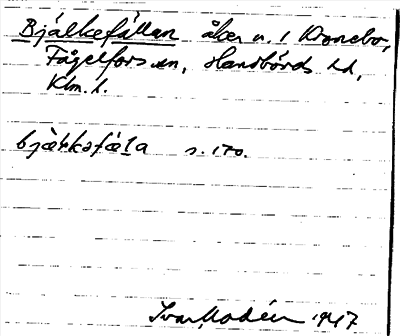 Bjälkefällan åker n. 1 Kronebo,
Fågelfors sn, Handbörds hd,
Klm. l.
bjæ̀ḷkəfæ̀ḷa s. 170.
Ivar Modéer 1947